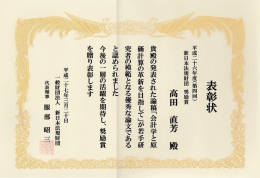 表彰状
平成二十六年度(第四回)
新日本法規財団 奨励賞
高田 直芳 殿
貴殿の発表された論稿「会計学と原
価計算の革新を目指して」が若手研
究者の模範となる優秀な論文である
と認められました
今後の一層の活躍を期待し、奨励賞
を贈り表彰します
平成二十七年三月二十日
一般財団法人 新日本法規財団
代表理事 服部 昭三